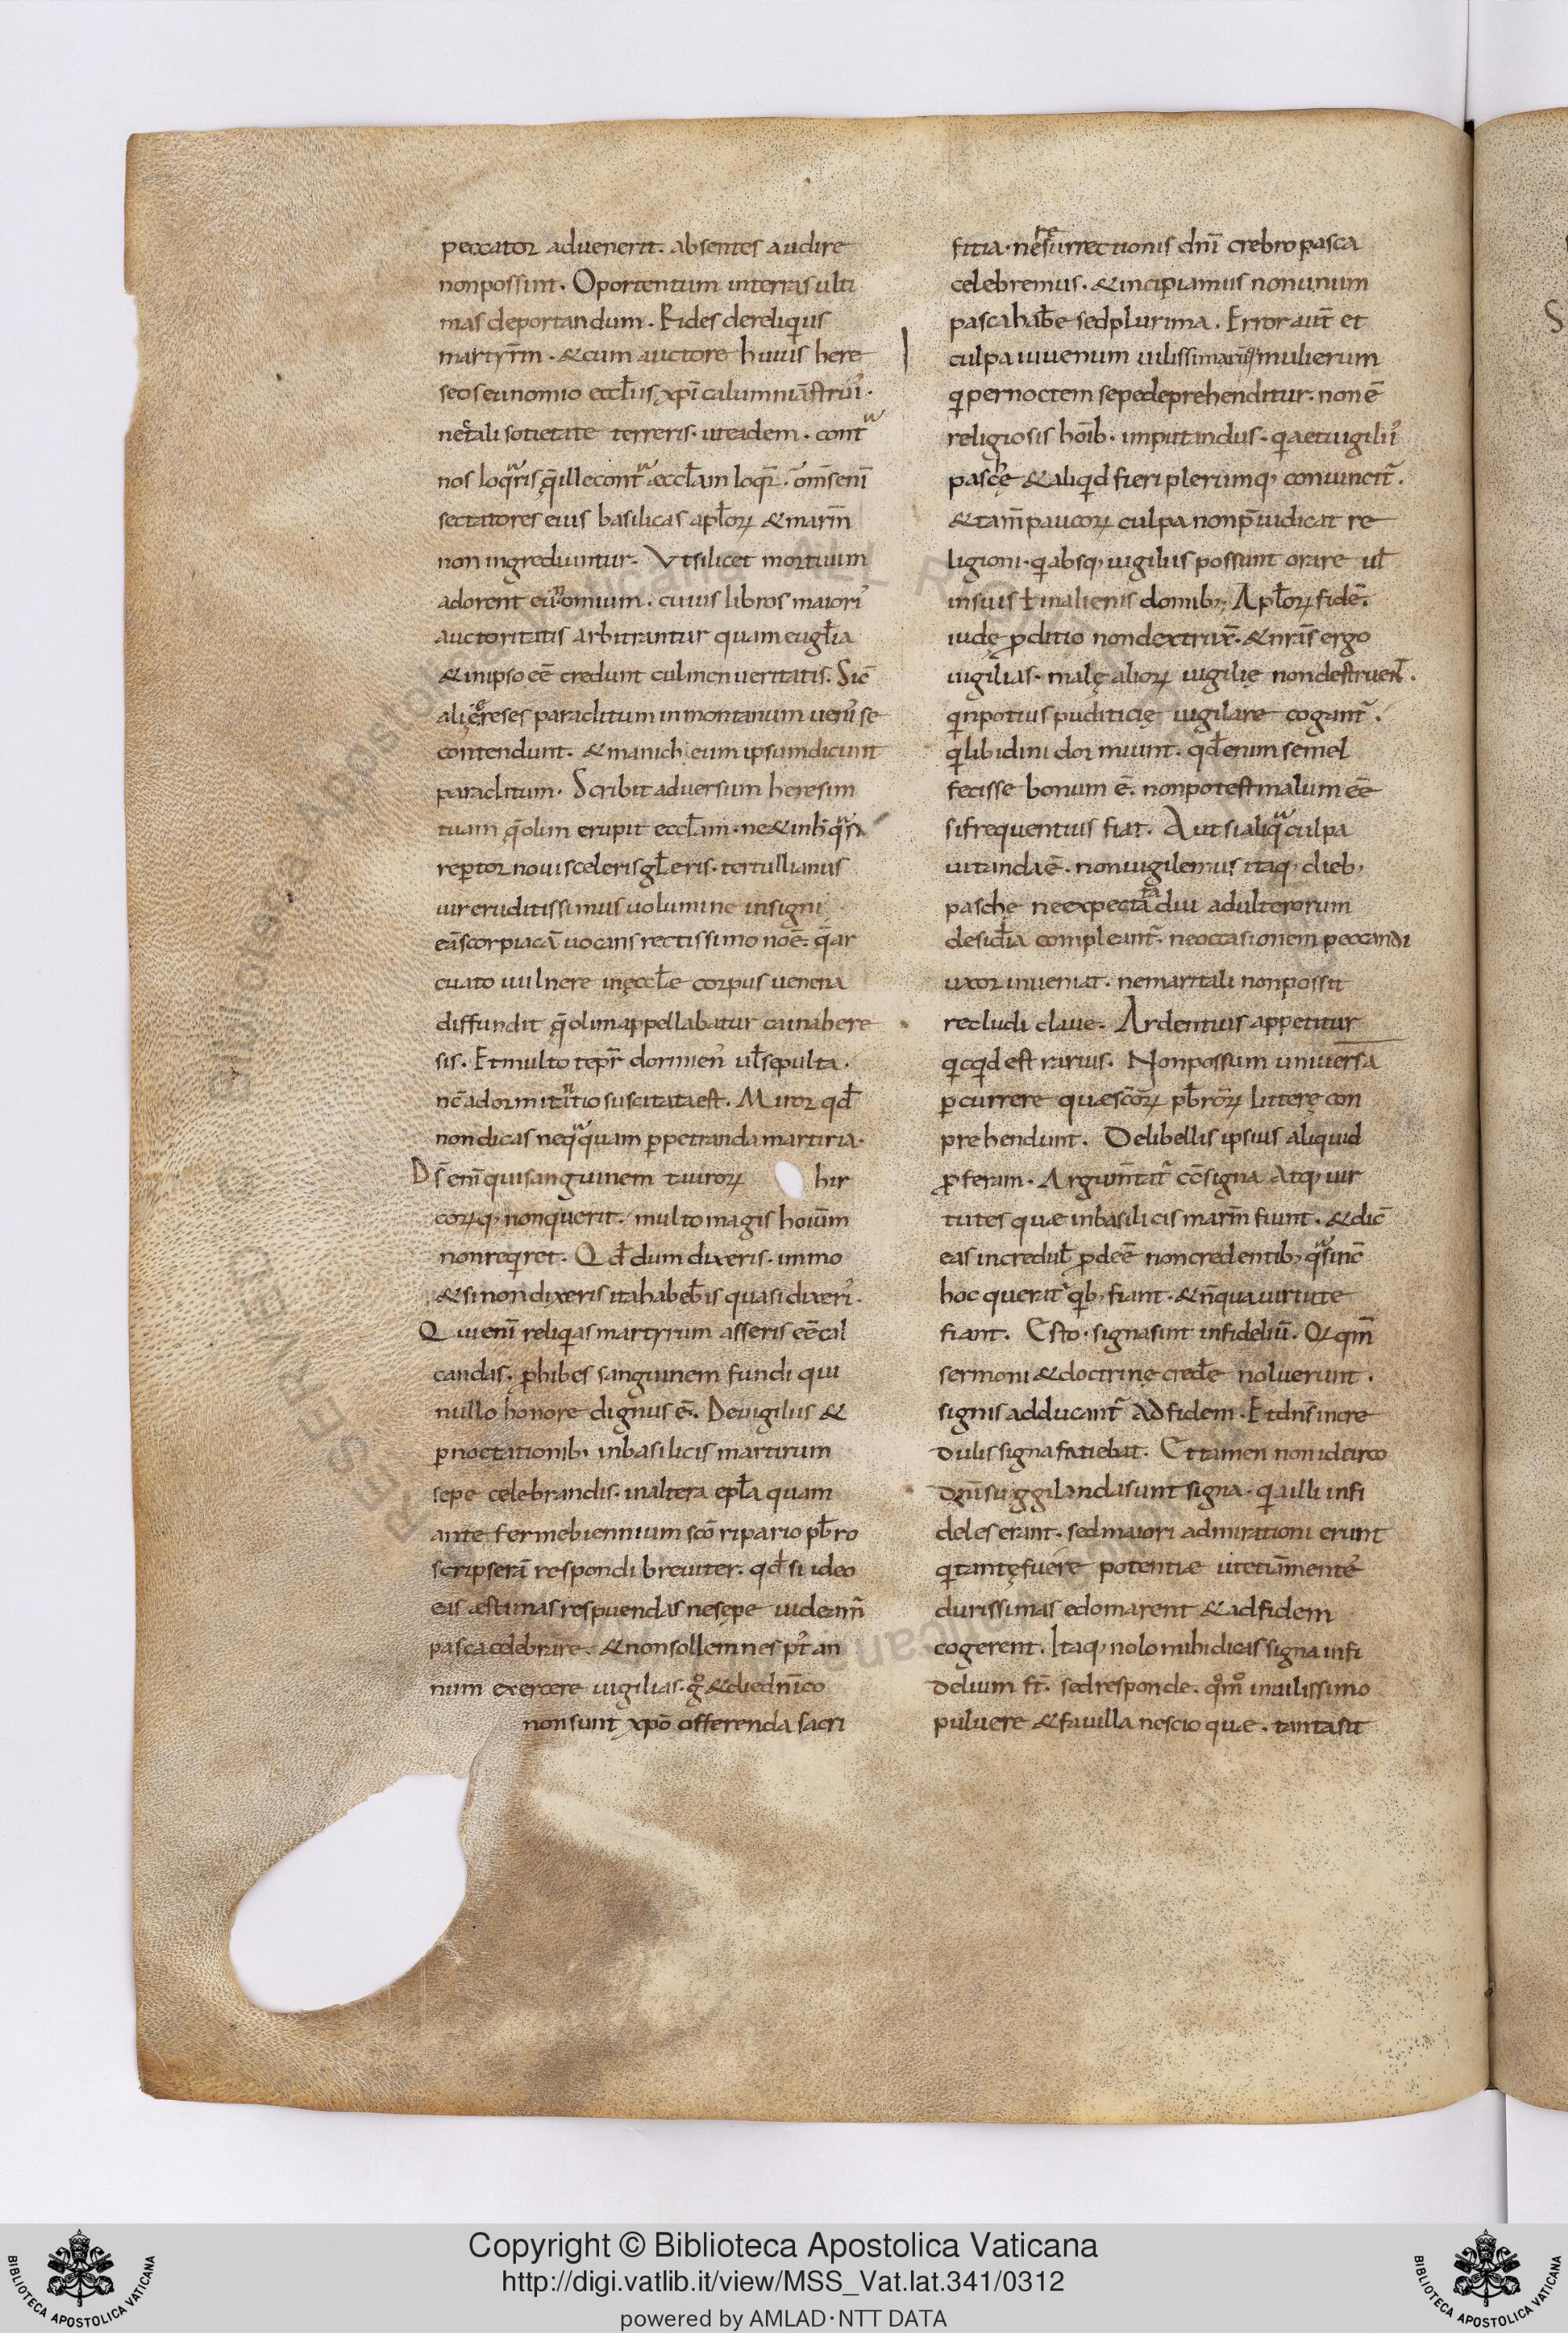 peccator aduenerit. absentes audire
nonpossint. Oportentum interras ulti
mas deportandum. Rides dereliquiis
martyrm̄. &cum auctore huius here
seos eunomio eccłiis xp̄i calumniā struis.
nec tali sotietate terreris. uteadem. contra
nos loquaris q̄ ille contra eccłam loqr̄. om̄s eni
sectatores eius basilicas apłoꝝ & marm̄
non ingrediuntur. Vtsilicet mortuum
adorent eunomium. cuius libros maioris
auctoritatis arbitrantur quam eugłia
&inipso eē credunt culmen ueritatis. Sic̄
alię hereses paraclitum inmontanum uenisse
contendunt. &manicheum ipsumdicunt
paraclitum. Scribit aduersum heresim
tuam q̄ olim erupit eccłam. ne&inh̄ quasi
reptor noui sceleris głeris. tertullianus
uir eruditissimus uolumine insigni
eā scorpiacā uocans rectissimo noē. q̄ ar
cuato uulnere inęccłe corpus uenena
diffundit q̄ olim appellabatur caina here
sis. Et multo tepr̄ dormiens uł sepulta.
nc̄ adormitantio suscitata est. Miror qd̄
nondicas nequaquam ꝑpetranda martiria.
Ds̄ enī qui sanguinem tauroꝝ hir
coꝝq; non querit. multo magis hoium̄
nonreqiret. Qd̄ dum dixeris. immo
&sinon dixeris ita habeb̄is quasi dixeris.
Qui enī reliqias martyrum asseris eē cal
candas. ꝓhibes sanguinem fundi qui
nullo honore dignus ē. Deuigiliis &
ꝑnoctationib; inbasilicis martirum
sepe celebrandis. inaltera epła quam
ante ferme biennium sc̄o ripario pb̄ro
scripserā respondi breuiter. qd̄ si ideo
eas æstimas respuendas ne sępe uideam̄
pasca celebrare. &non sollemnes pt̄ an
num exercere uigilias. go &die dn̄ico
non sunt xp̄o offerenda sacri
fitia. ne resurrectionis dnī crebro pasca
celebremus. &incipiamus non unum
pasca hab̄e sed plurima. Error aut̄ et
culpa iuuenum uilissimarūq; mulierum
qi per noctem sepe deprehenditur. non ē
religiosis hoīb. imputandus. qia etuigiliis
paschę &aliqid fieri plerumq; conuincit̄.
&tam̄ paucoꝝ culpa non p̄iudicat re
ligioni. qi absq; uigiliis possunt orare uł
insuis ł inalienis domib;. Apłoꝝ fidē.
iudę ꝓditio non dextrux̄. &nr̄as ergo
uigilias. malę alioꝝ uigilię non destruent.
qin potius puditicię uigilare cogant̄.
qi libidini dormiunt. qd̄ enim semel
fecisse bonum ē. non potest malum eē
si frequentius fiat. Aut si aliqua culpa
uitanda ē. non uigilemus itaq; dieb;
paschę ne expectata diu adulterorum
desid̄ia compleant̄. ne occasionem peccandi
uxor inueniat. ne maritali non possit
recludi claue. Ardentius appetitur
qicqid est rarius. Non possum uniuersa
ꝑcurrere quæ sc̄oꝝ pb̄roꝝ litterę con
prehendunt. De libellis ipsius aliquid
ꝓferam. Argum̄tat̄ cō signa atq; uir
tutes quæ inbasilicis marm̄ fiunt. &dic̄
eas increduł ꝓdeē non credentib; quasi nc̄
hoc querat̄ qib; fiant. &n̄ qua uirtute
fiant. Esto. signa sint infideliū. Qi qm̄
sermoni &doctrinę cred̄e noluerunt.
signis adducant̄ ad fidem. Et dn̄s incre
dulis signa fatiebat. Et tamen non idcirco
dn̄i suggilanda sunt signa. qia illi infi
deles erant. sed maiori admirationi erunt
qi tantę fuere potentiæ ut etiā mentes
durissimas edomarent &ad fidem
cogerent. Itaq; nolo mihi dicas signa infi
delium st̄. sed responde. qomo inuilissimo
puluere &fauilla nescio quæ. tanta sit
Copyright © Biblioteca Apostolica Vaticana
http://digi.vatlib.it/view/MSS_Vat.lat.341/0312
powered by AMLAD · NTT DATA
BIBLIOTECA APOSTOLICA VATICANA
BIBLIOTECA APOSTOLICA VATICANA